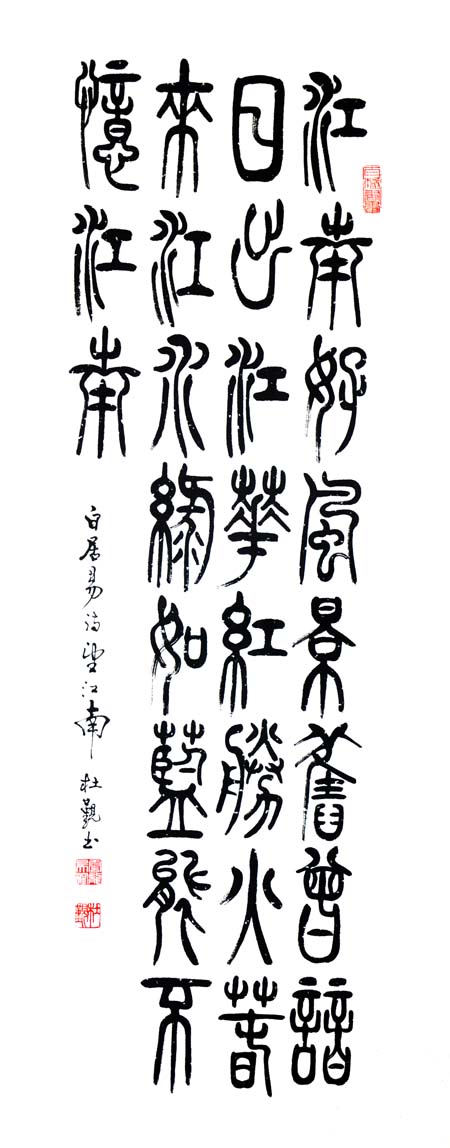 江南好風景舊曾諳
日出江華紅勝火春
來江水綠如藍能不
憶江南
白居易詩望江南 杜书